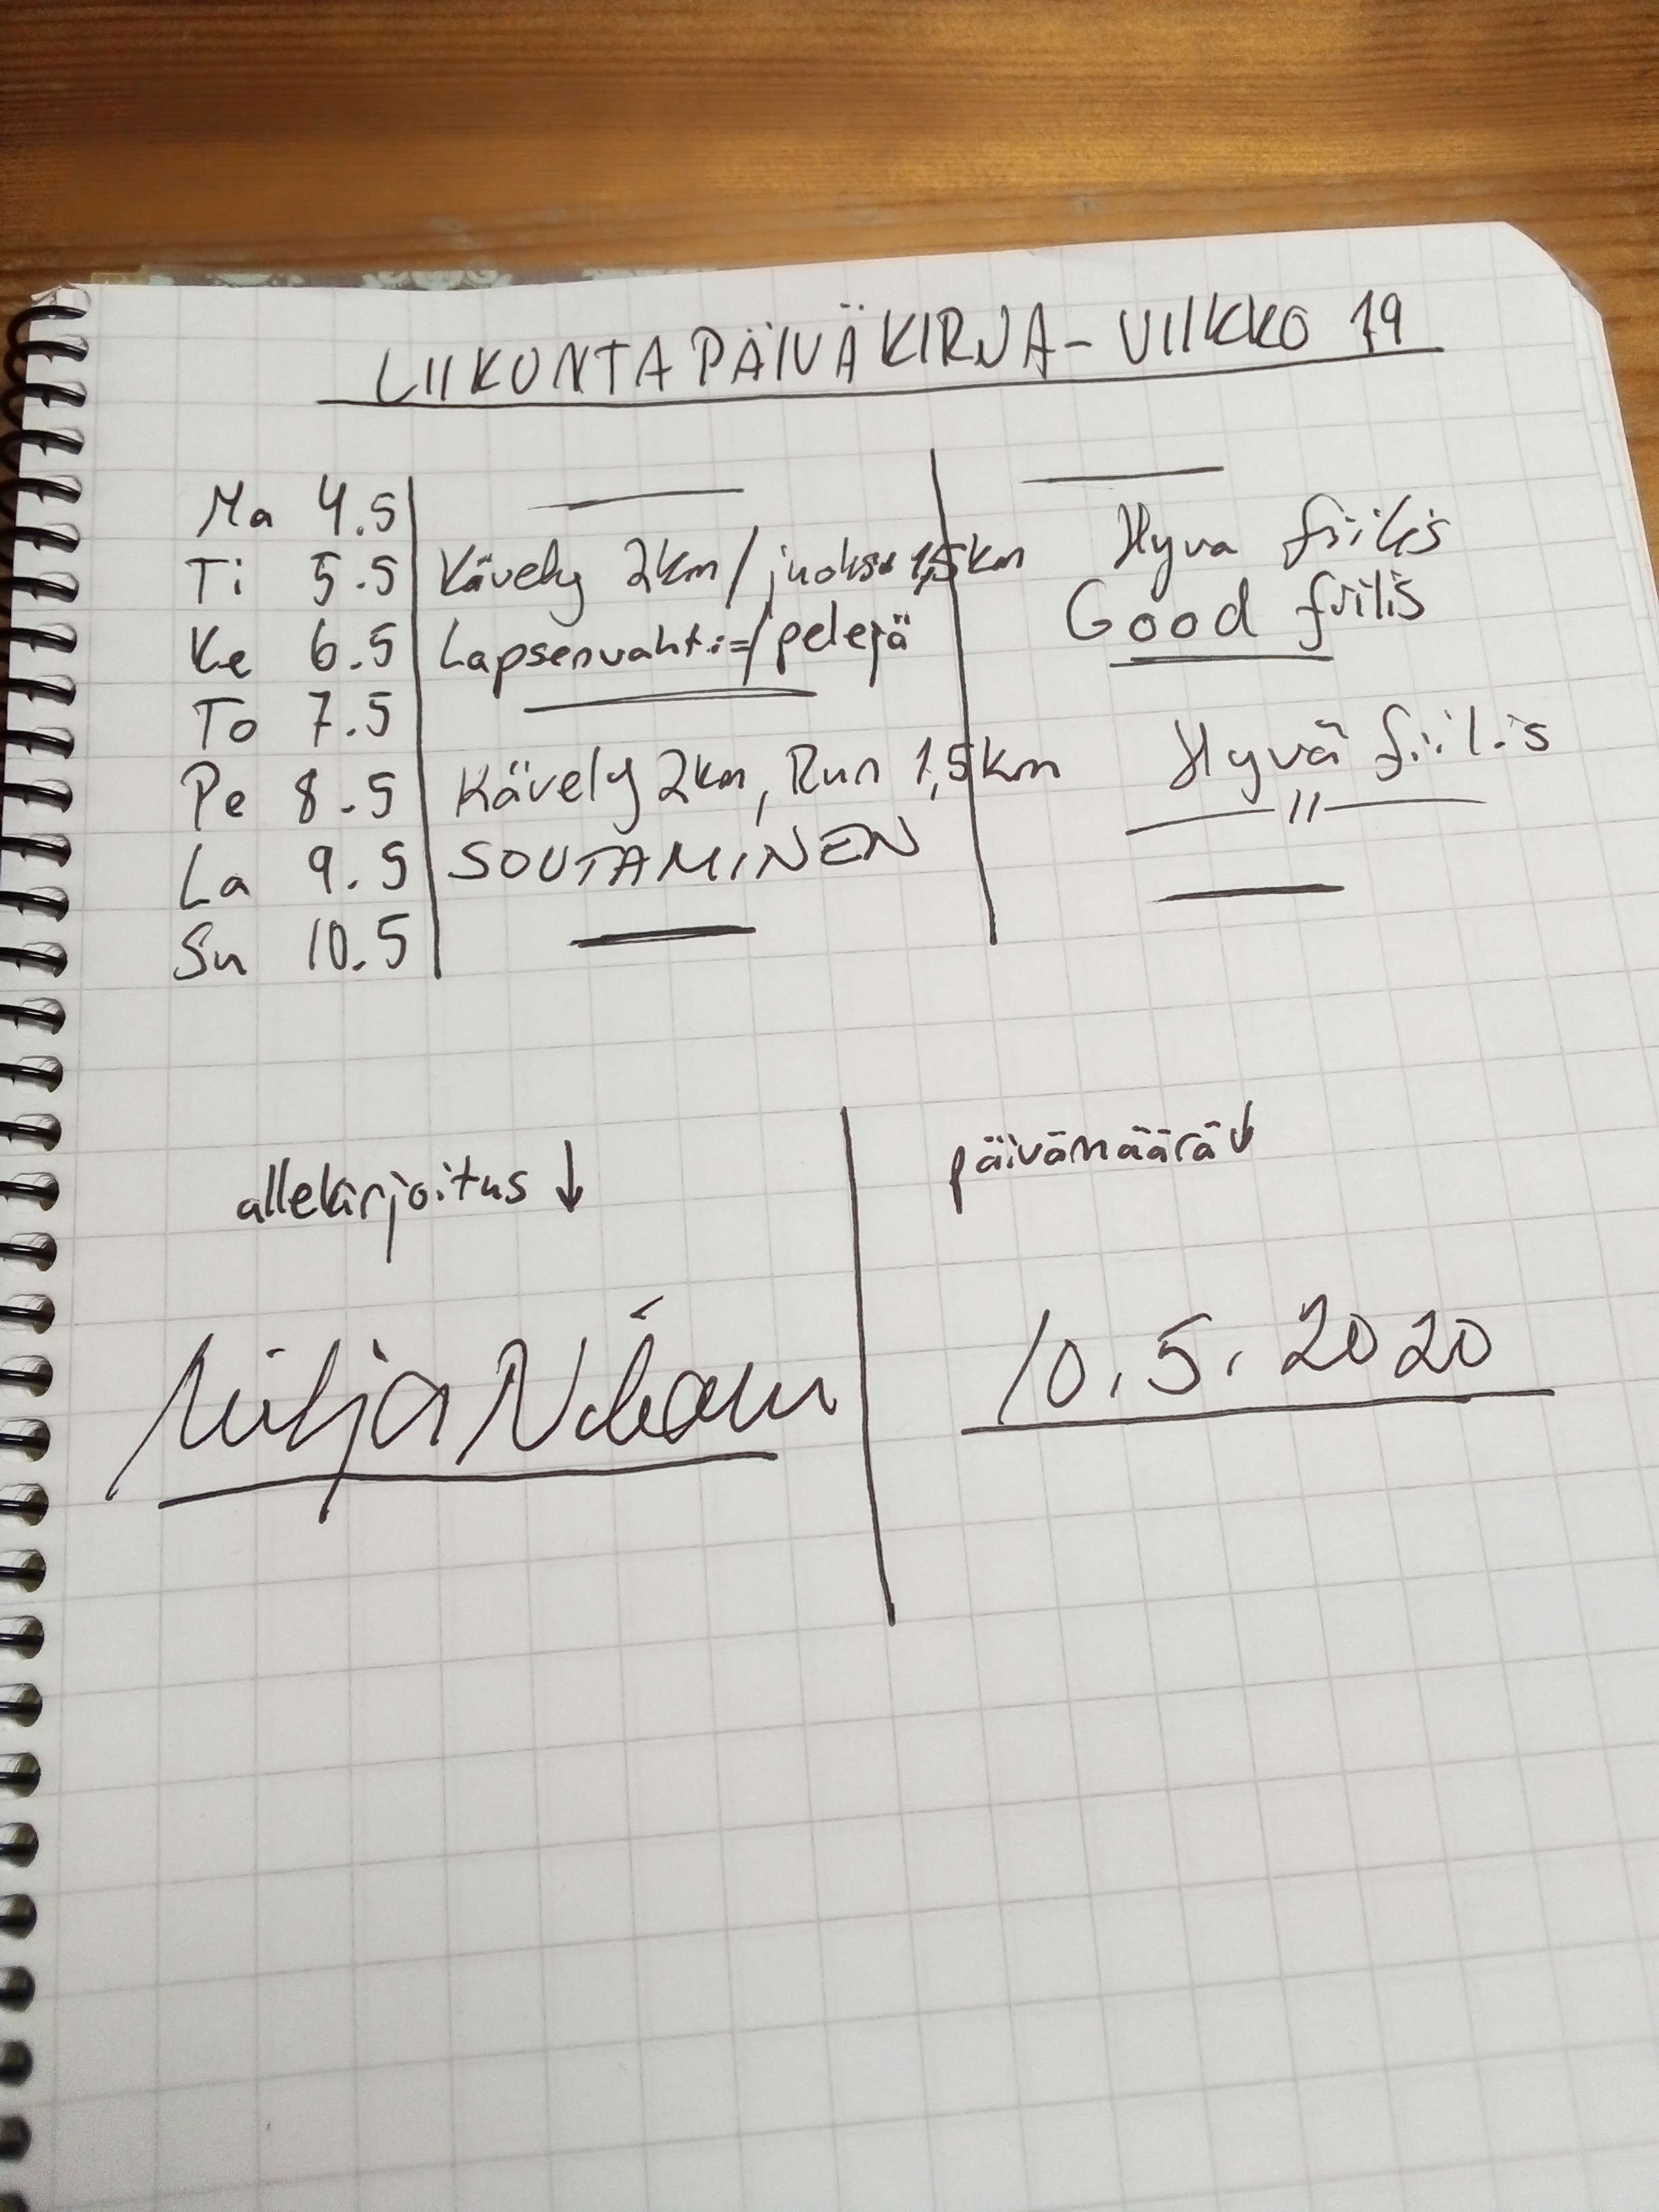 LIIKUNTAPÄIVÄKIRJA - VIIKKO 19
Ma 4.5
Ti 5.5 Kävely 2km / juoksu 1,5km Hyva fiilis
Ke 6.5 Lapsenvahti=/pelejä Good fiilis
To 7.5
Pe 8.5 Kävely 2km, Run 1,5km Hyvä fiilis
La 9.5 SOUTAMINEN -11-
Su 10.5
allekirjoitus ↓ päivämäärä ↓
10.5.2020